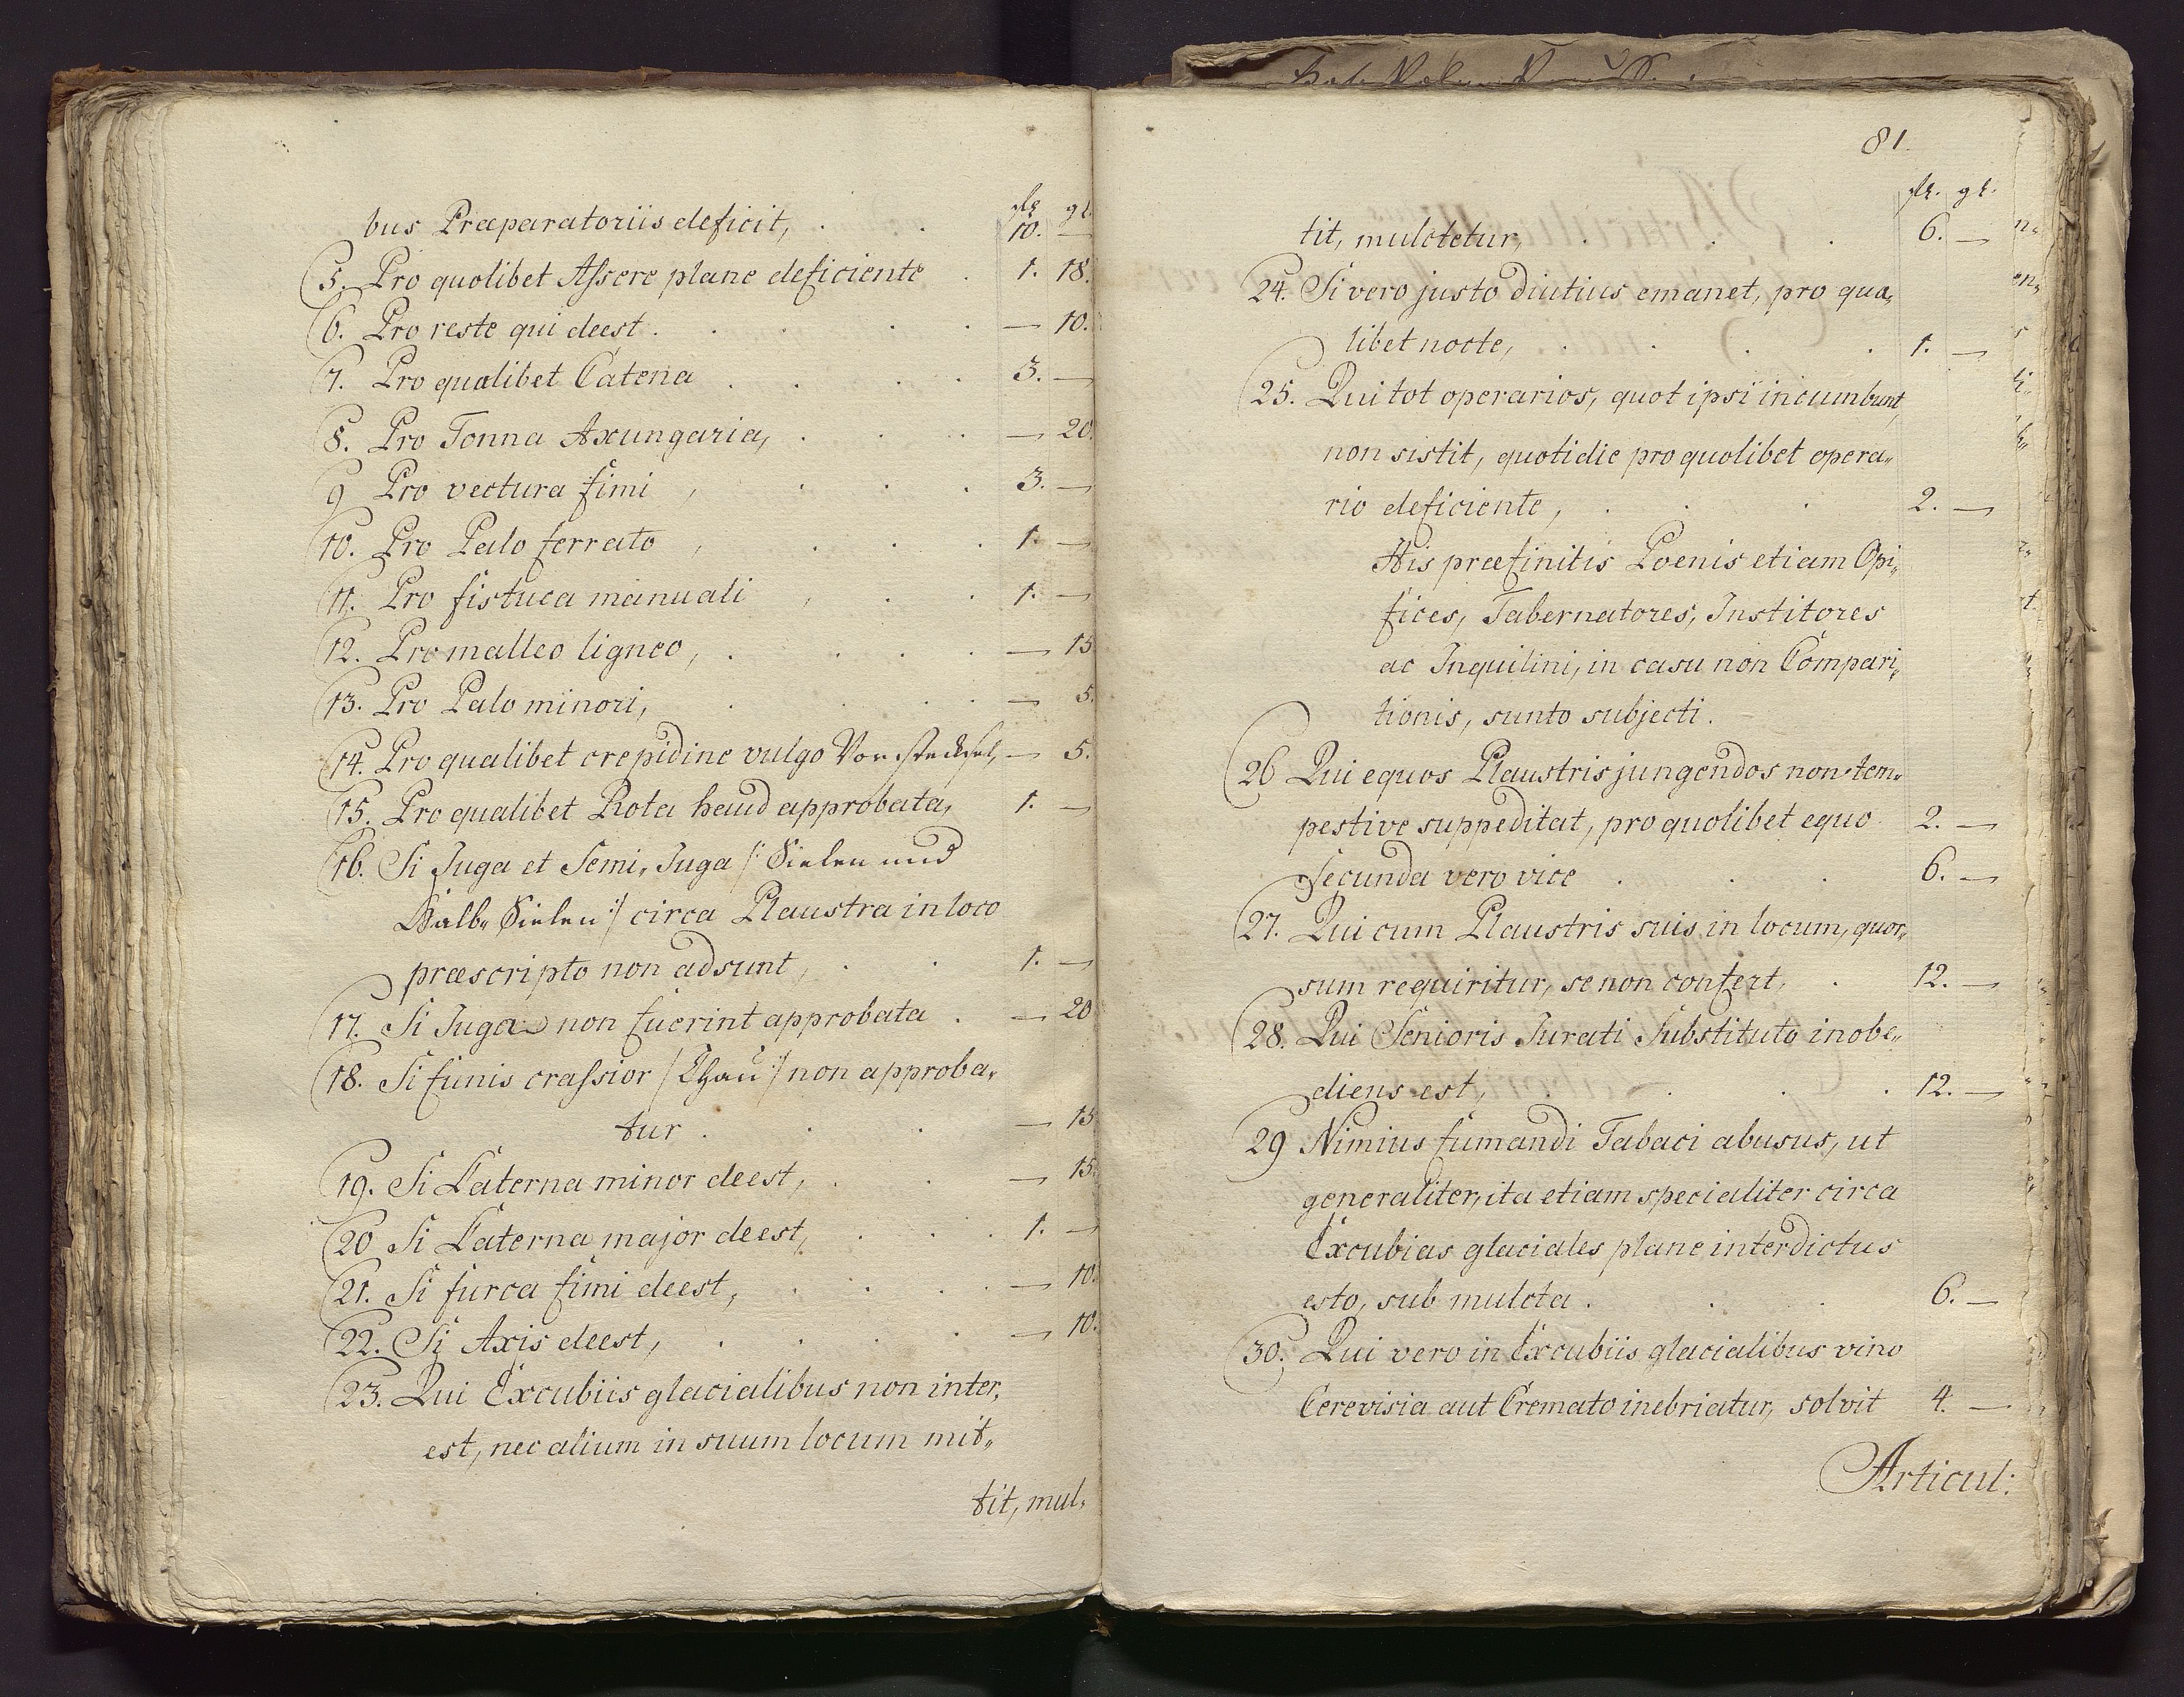 fl. gl.
bus Præparatoriis deficit, . . 10. —
5. Pro quolibet Aſsere plane deficiente . 1. 18.
6. Pro reste qui deest . . . . — 10.
7. Pro qualibet Catena . . . . 3. —
8. Pro Tonna Axungaria, . . . — 20.
9 Pro vectura fimi , . . . 3. —
10. Pro Palo ferrato , . . . 1. —
11. Pro fistuca manuali , . . 1. —
12. Pro malleo ligneo, . . . . — 15
13. Pro Palo minori, . . . . — 5.
14. Pro qualibet crepidine vulgo Vorstecksel, — 5.
15. Pro qualibet Rota haud approbata, 1. —
16. Si Juga et Semi„Juga /: Sielen und
Halb„Sielen :/ circa Plaustra in loco
præscripto non adsunt, . . 1. —
17. Si Juga non fuerint approbata . — 20
18. Si funis craſsior /: Thau :/ non approba„
tur . . . — 15
19. Si Laterna minor deest, . . — 15.
20 Si Laterna major deest, . . . 1. —
21. Si furca fimi deest, . . . — 10.
22. Si Axis deest, . . . . — 10.
23. Qui Excubiis glacialibus non inter„
est, nec alium in suum locum mit„
tit, mul„
81.
fl. gl.
tit, mulctetur, . . . 6. —
24. Si vero justo diutius emanet, pro qua„
libet nocte, . . . . 1. —
25. Qui tot operarios, quot ipsi incumbunt,
non sistit, quotidie pro quolibet opera„
rio deficiente, . . . 2. —
His præfinitis Poenis etiam Opi„
fices, Tabernatores, Institores
ac Inquilini, in casu non Compari„
tionis, sunto subjecti.
26 Qui equos Plaustris jungendos non tem„
pestive suppeditat, pro quolibet equo 2. —
Secunda vero vice . . . 6. —
27. Qui cum Plaustris suis in locum, quor„
sum requiritur, se non confert, . 12. —
28. Qui Senioris Jurati Substituto inobe„
diens est, . . . . 12. —
29 Nimius fumandi Tabaci abusus, ut
generaliter, ita etiam specialiter circa
Excubias glaciales plane interdictus
esto, sub mulcta . . . 6. —
30. Qui vero in Excubiis glacialibus vino
Cerevisia aut Cremato inebriatur, solvit 4. —
Articul: